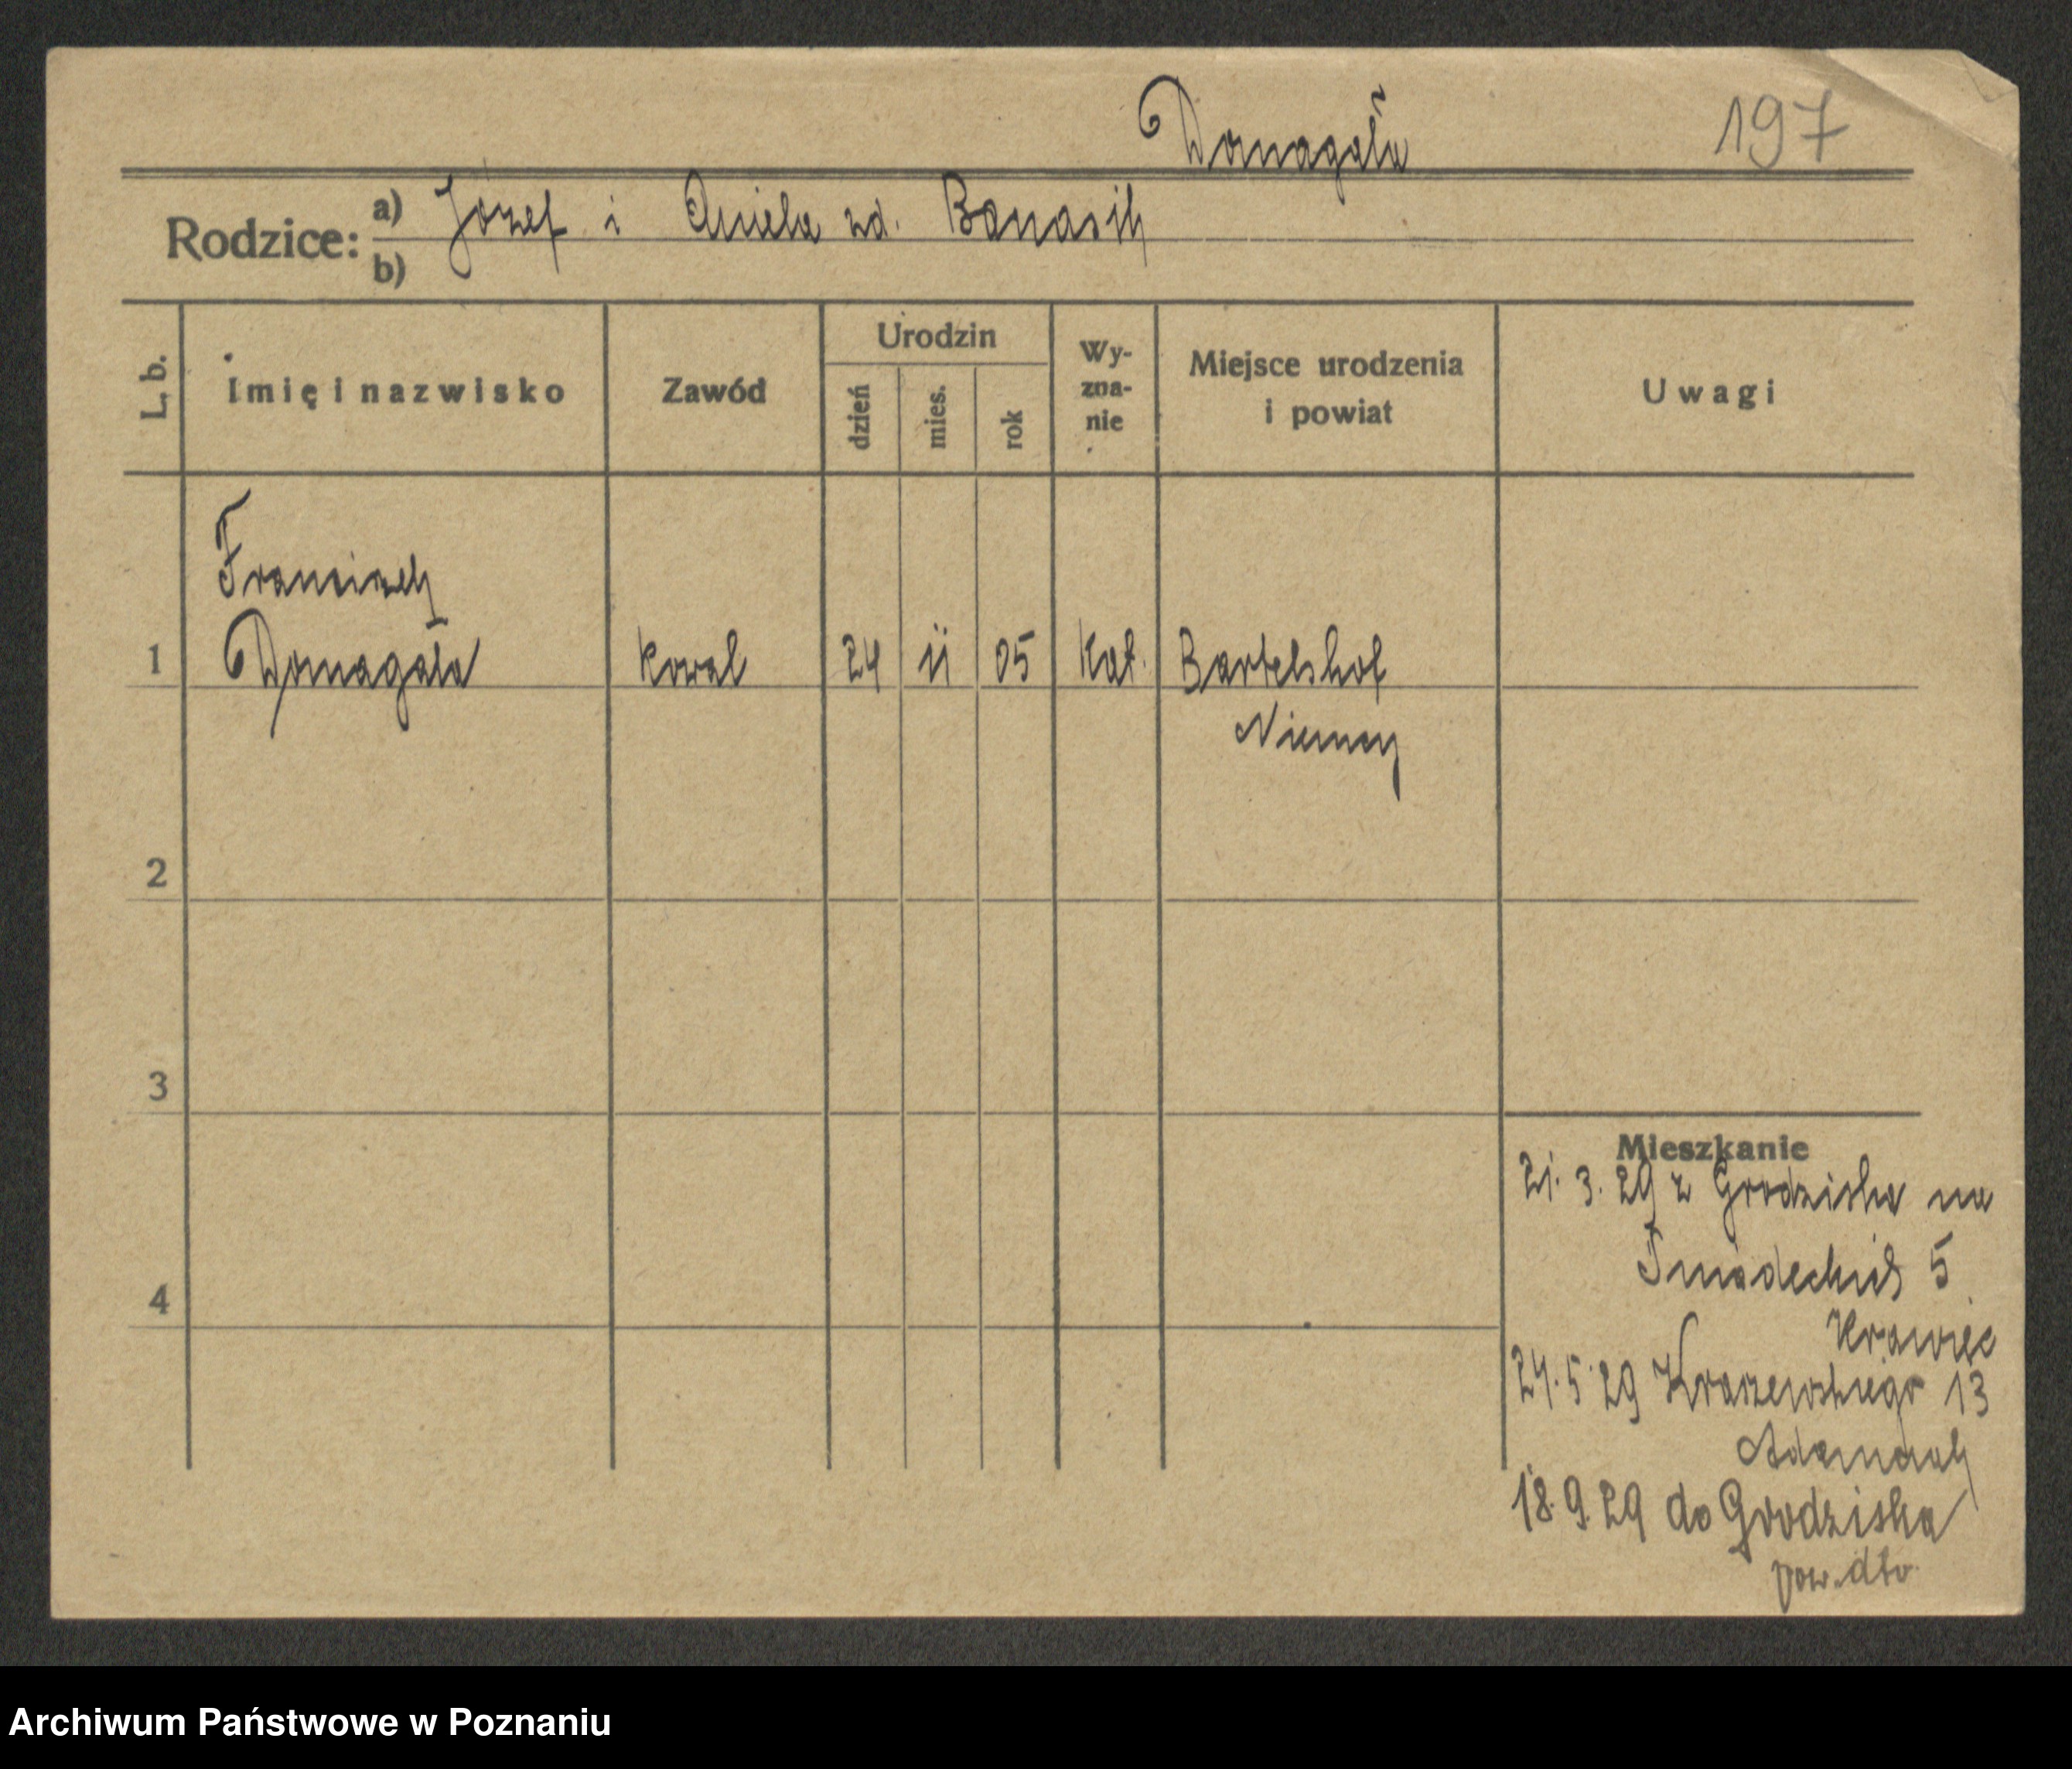 Domagała
197
Rodzice: a) Józef i Aniela zd. Banasik
b)
L. b.
Imię i nazwisko
Zawód
Urodzin
dzień
mies.
rok
Wy-
zna-
nie
Miejsce urodzenia
i powiat
Uwagi
Franciszek
1 Domagała kowal 24 11 05 Kat. Bartelshof
Niemcy
2
3
4
Mieszkanie
21. 3. 29 z Grodziska na
5
Krawiec
24. 5. 29 Kraszewskiego 13
Adamczak
18. 9. 29 do Grodziska
pow. dto
Archiwum Państwowe w Poznaniu